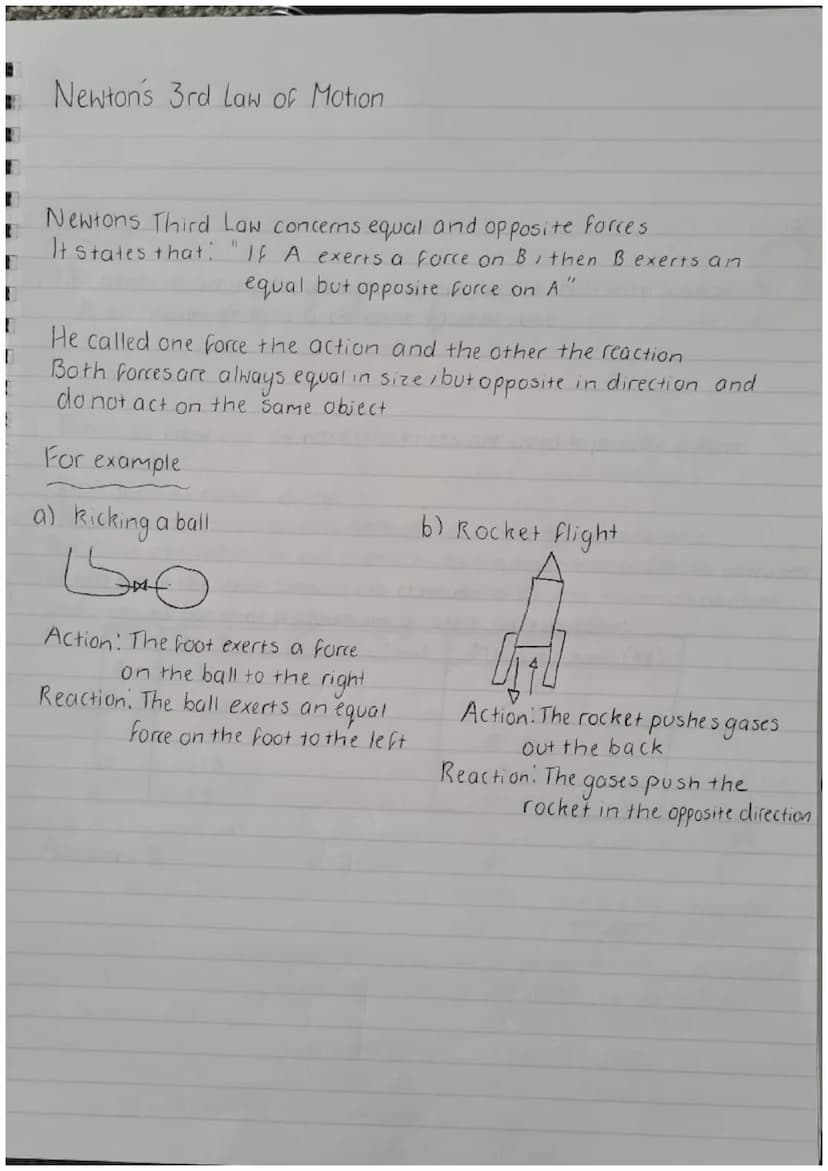 Newton's 3rd Law of Motion
Newtons Third Law concerns equal and opposite forces
It states that: "If A exerts a force on B, then B exerts an
equal but opposite force on A"
He called one force the action and the other the reaction
Both forces are always equal in size, but opposite in direction and
do not act on the same object
For example
a) Kicking a ball
Action: The foot exerts a force
on the ball to the right
Reaction: The ball exerts an equal
force on the foot to the left
b) Rocket flight
Action: The rocket pushes gases
out the back
Reaction: The gases push the
rocket in the opposite direction